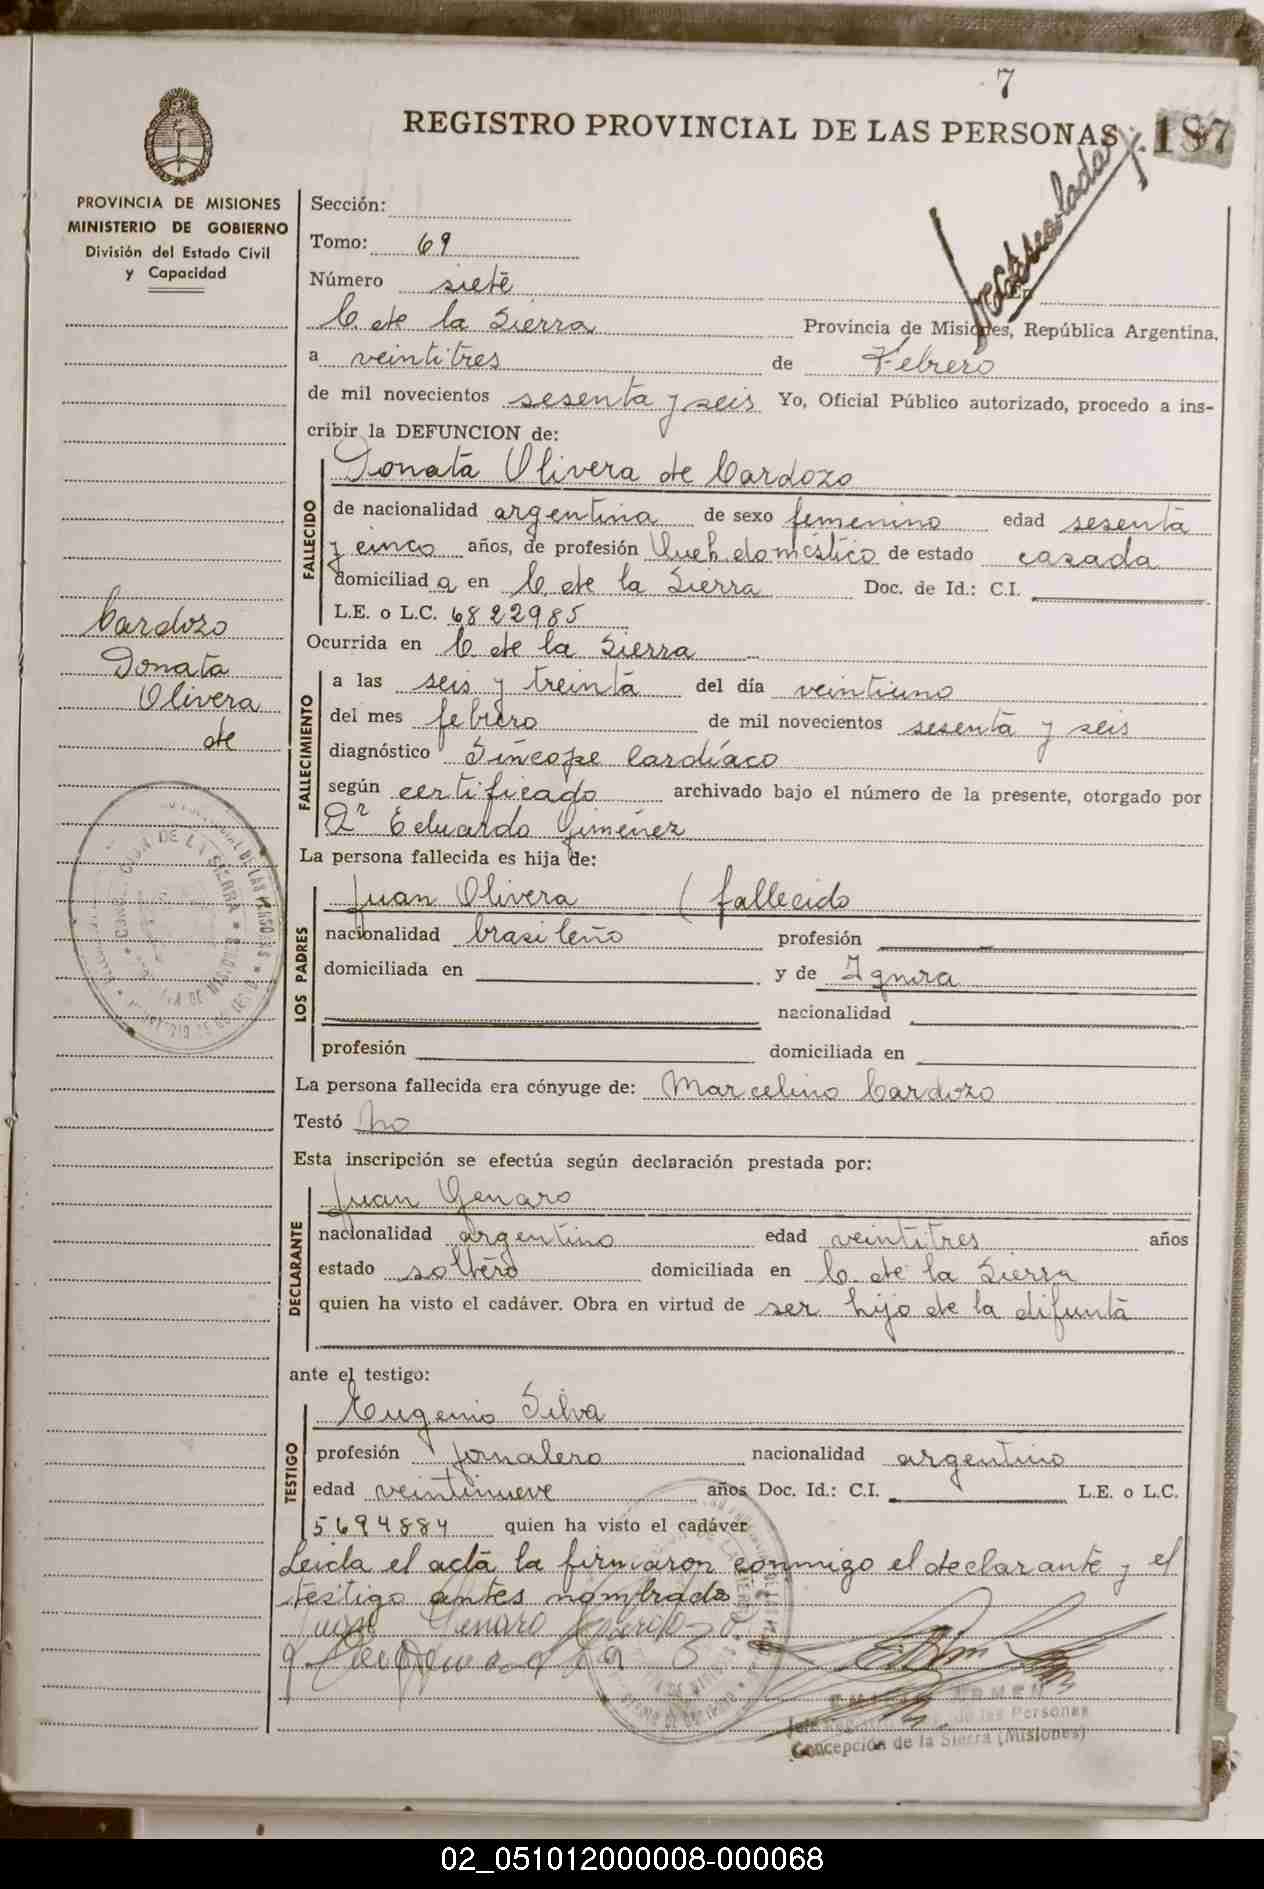 7
REGISTRO PROVINCIAL DE LAS PERSONAS
187
PROVINCIA DE MISIONES
MINISTERIO DE GOBIERNO
División del Estado Civil
y Capacidad
Sección:
Tomo: 69
Número siete
C. de la Sierra Provincia de Misiones, República Argentina,
a veintitres de Febrero
de mil novecientos sesenta y seis Yo, Oficial Público autorizado, procedo a ins-
cribir la DEFUNCION de:
FALLECIDO
Donata Olivera de Cardozo
de nacionalidad argentina de sexo femenino edad sesenta
y cinco años, de profesión Queh. doméstico de estado casada
domiciliad a en C. de la Sierra Doc. de Id.: C.I.
L.E. o L.C. 6822985
Cardozo
Donata
Olivera
de
Ocurrida en C. de la Sierra
FALLECIMIENTO
a las seis y treinta del día veintiuno
del mes febrero de mil novecientos sesenta y seis
diagnóstico Síncope Cardíaco
según certificado archivado bajo el número de la presente, otorgado por
Dr Eduardo Giménez
La persona fallecida es hija de:
LOS PADRES
Juan Olivera ( fallecido
nacionalidad brasileño profesión
domiciliada en y de Ignora
nacionalidad
profesión domiciliada en
La persona fallecida era cónyuge de: Marcelino Cardozo
Testó No
Esta inscripción se efectúa según declaración prestada por:
DECLARANTE
Juan Genaro
nacionalidad argentino edad veintitres años
estado soltero domiciliada en C. de la Sierra
quien ha visto el cadáver. Obra en virtud de ser hijo de la difunta
ante el testigo:
TESTIGO
Eugenio Silva
profesión jornalero nacionalidad argentino
edad veintinueve años Doc. Id.: C.I. L.E. o L.C.
5694884 quien ha visto el cadáver
Leida el acta la firmaron conmigo el declarante y el
testigo antes nombrado
Juan Genaro
de las Personas
Concepción de la Sierra (Misiones)
02_051012000008-000068